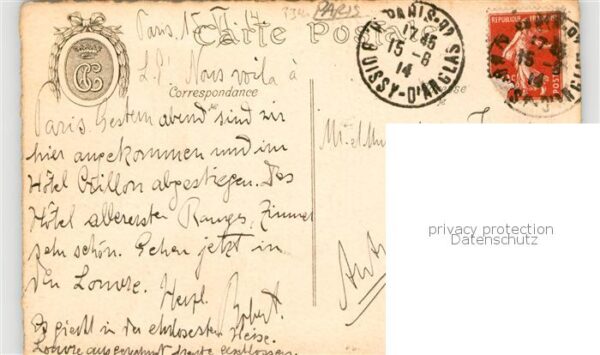 Paris. 15. 6. 14
PARIS
Carte Postale
Correspondance
L. P! Nous voila à
Paris. Gestern abend sind wir
hier angekommen und im
Hôtel abgestiegen. Das
Hôtel allerersten Ranges, Zimmer
sehr schön. Gehen jetzt in
den Louvre. Herzl. Robert.
Es giesst in der ehrlosesten Weise.
Louvre heute geschlossen
PARIS-
17 45
15 - 6
14
BOISSY-D'ANGLAS
REPUBLIQUE FRANÇAISE
POSTES
privacy protection
Datenschutz